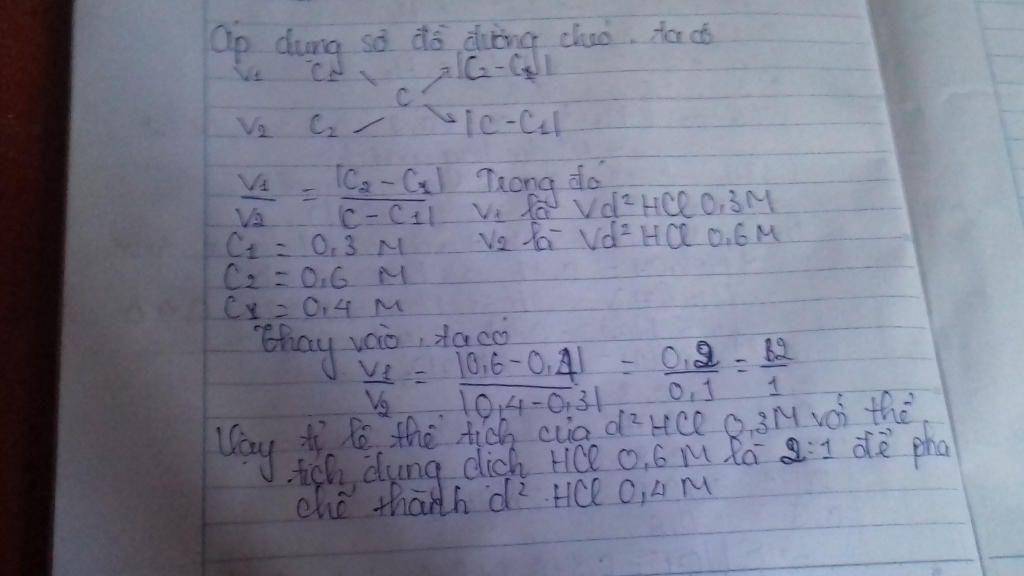 Áp dụng sơ đồ đường chéo, ta có
V₁ C₁ |C₂ - Cₓ|
C
V₂ C₂ |C - C₁|
V₁/V₂ = |C₂ - Cₓ|/|C - C₁| Trong đó
V₁ là Vd² HCl 0,3M
C₁ = 0,3 M V₂ là Vd² HCl 0,6M
C₂ = 0,6 M
Cₓ = 0,4 M
Thay vào, ta có
V₁/V₂ = |0,6 - 0,4|/|0,4 - 0,3| = 0,2/0,1 = 2/1
Vậy tỉ lệ thể tích của d² HCl 0,3M với thể
tích dung dịch HCl 0,6 M là 2:1 để pha
chế thành d² HCl 0,4 M